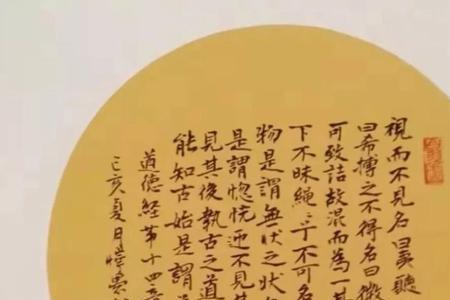 視而不見名曰夷聽
曰希搏之不得名曰微
可致詰故混而為一其
下不昧繩〻兮不可名
物是謂無狀之狀
是謂惚恍迎不見其
見其後執古之道
能知古始是謂
道德經第十四章
己亥夏日